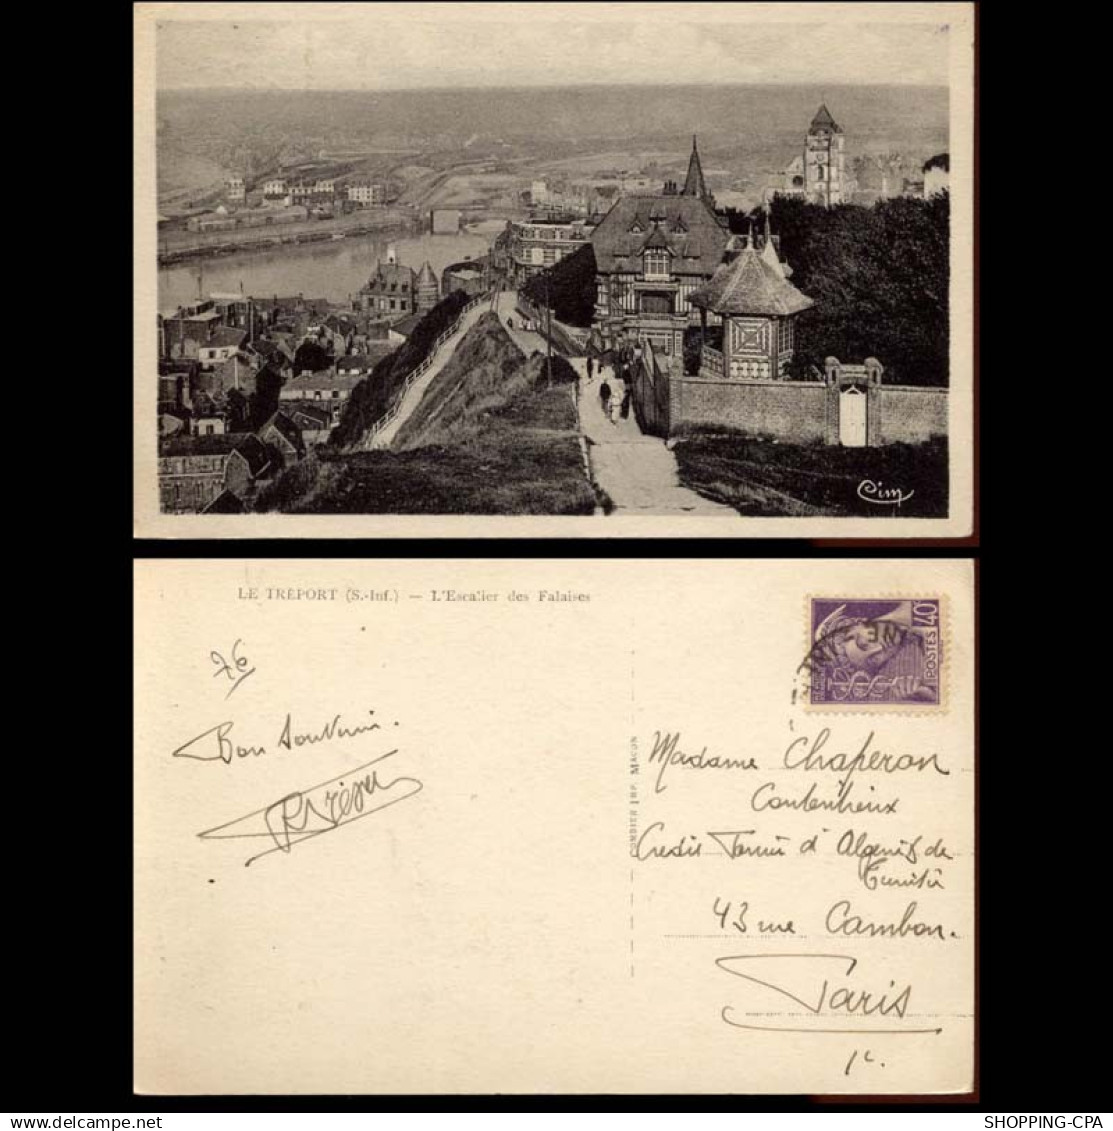 Cim
LE TRÉPORT (S.-Inf.) — L'Escalier des Falaises
76
40
POSTES
Bon Souvenir.
COMBIER IMP. MACON
Madame Chaperon
Contentieux
Credit Foncier d'Algerie & de
Tunisie
43 rue Cambon.
Paris
1e.
SHOPPING-CPA